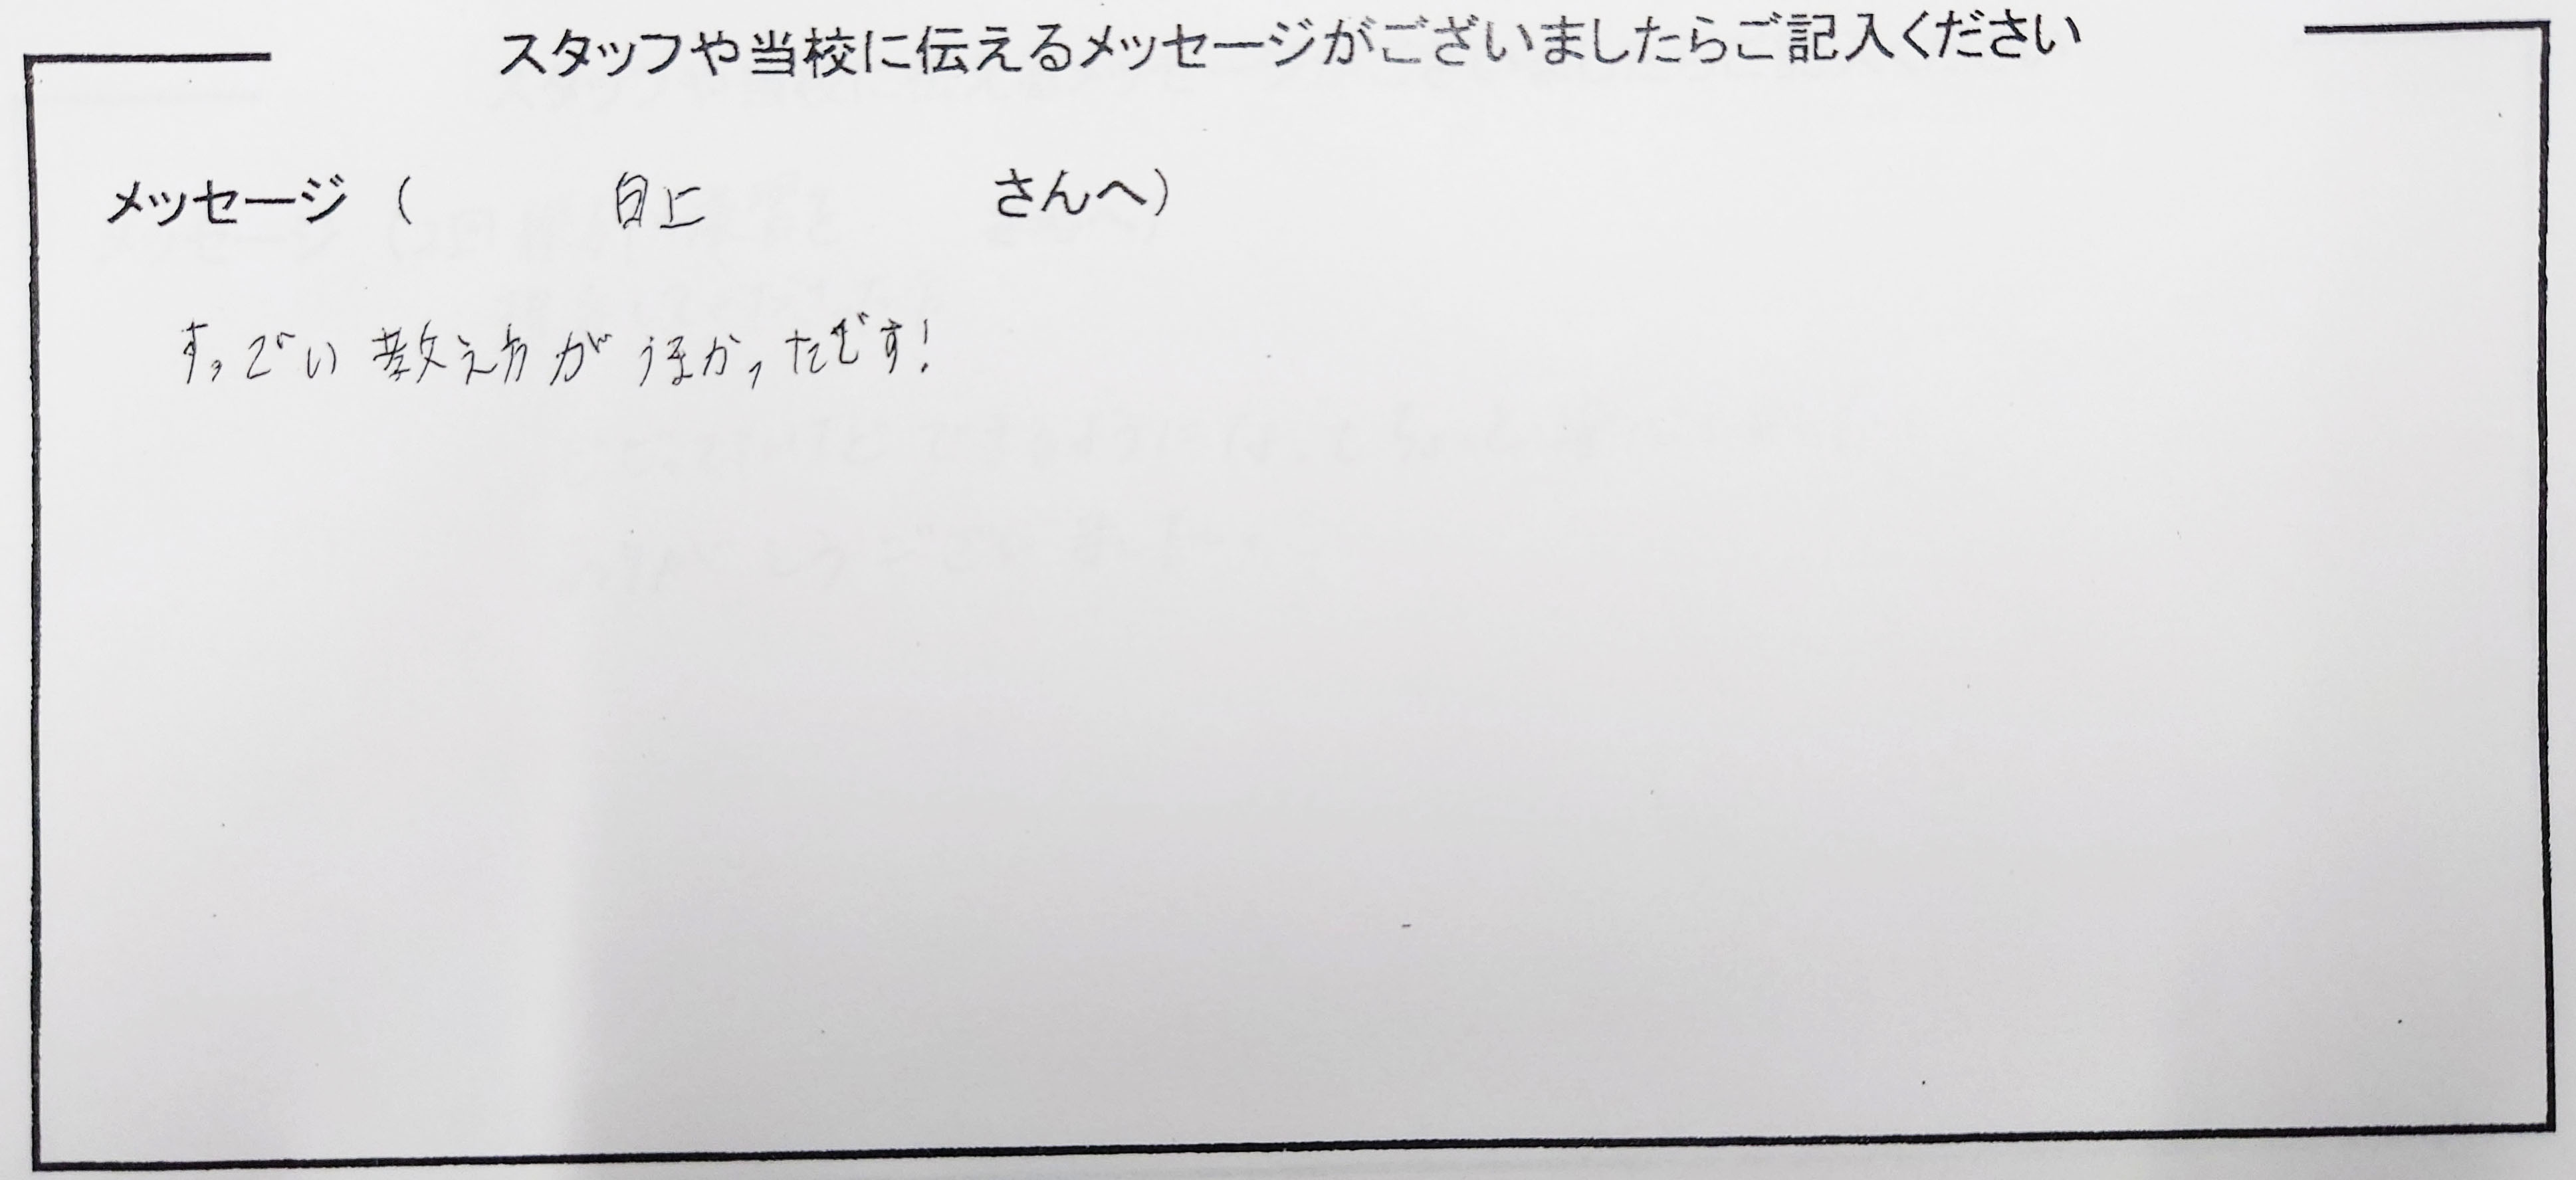 スタッフや当校に伝えるメッセージがございましたらご記入ください
メッセージ（ 白上 さんへ）
すっごい教え方がうまかったです！